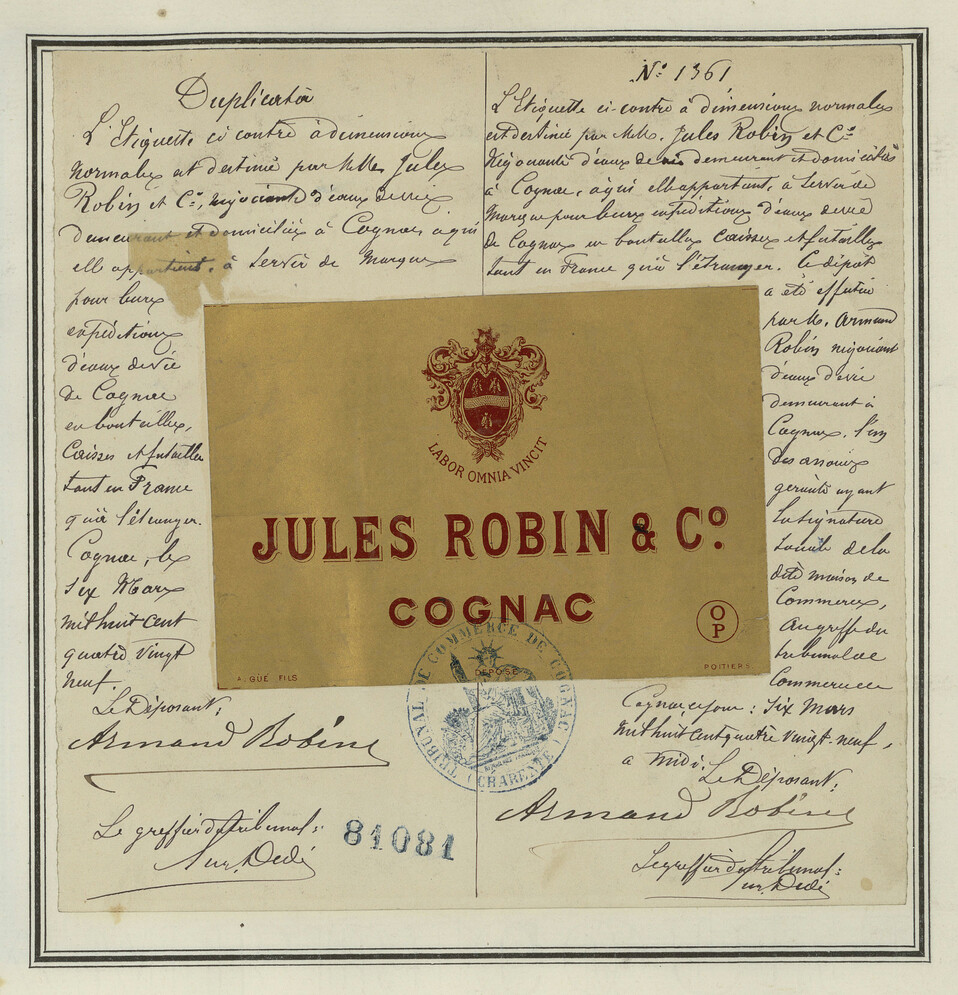 Duplicata
L'Etiquette ci contre à dimensions
normales est destinée par MM. Jules
Robin et Cie, négociants d'eaux de vie
demeurant et domiciliés à Cognac, a qui
elle appartient, à servir de Marque
pour leurs
expéditions
d'eaux de vie
de Cognac
en bouteilles,
Caisses et futailles
tant en France
qu'à l'étranger.
Cognac, le
six Mars
mil huit cent
quatre vingt
neuf.
Le Déposant:
Armand Robin
Le greffier du tribunal:
81081
No: 1361
L'Etiquette ci-contre à dimensions normales
est destinée par MM. Jules Robin et Cie
Négociants d'eaux de vie demeurant et domiciliés
à Cognac, à qui elle appartient, à servir de
Marque pour leurs expéditions d'eaux de vie
de Cognac en bouteilles Caisses et futailles
tant en France qu'à l'étranger. Ce dépôt
a été effectué
par M. Armand
Robin négociant
d'eaux d'evie
demeurant à
Cognac, l'un
des associés
gérants ayant
la signature
sociale de la
dite maison de
Commerce,
au greffe du
tribunal de
Commerce de
Cognac, ce jour: six Mars
mil huit cent quatre vingt-neuf,
a midi.
Le Déposant:
Armand Robin
Le greffier du tribunal:
LABOR OMNIA VINCIT
JULES ROBIN & Co.
COGNAC
OP
DÉPOSÉ
POITIERS
TRIBUNAL DE COMMERCE DE COGNAC (CHARENTE)